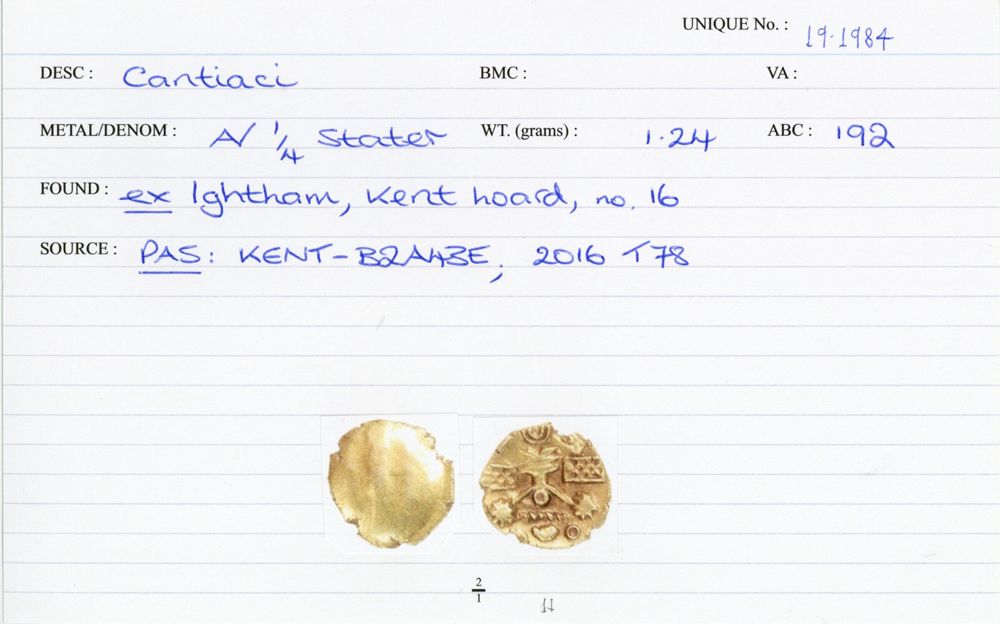 UNIQUE No. : 19.1984
DESC : Cantiaci BMC : VA :
METAL/DENOM : A/ 1/4 Stater WT. (grams) : 1.24 ABC : 192
FOUND : ex Ightham, Kent hoard, no. 16
SOURCE : PAS: KENT-B2A43E, 2016 T78
2/1